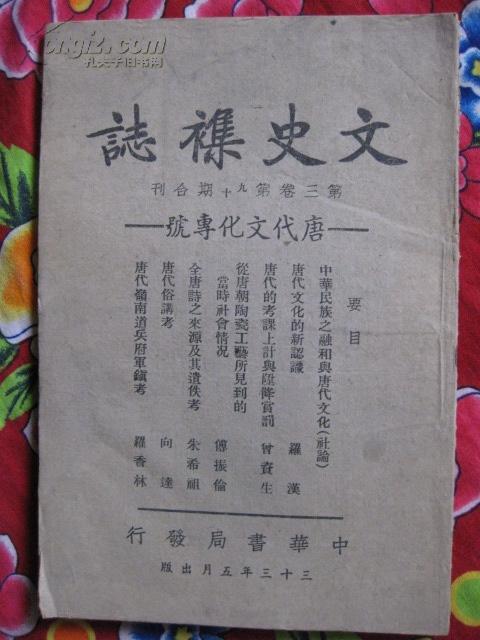 文史襍誌
第三卷第九十期合刊
唐代文化專號
要目
中華民族之融和與唐代文化(社論)
唐代文化的新認識 羅漢
唐代的考課上計與陞降賞罰 曾資生
從唐朝陶瓷工藝所見到的
當時社會情况 傅振倫
全唐詩之來源及其遺佚考 朱希祖
唐代俗講考 向達
唐代嶺南道兵府軍鎮考 羅香林
中華書局發行
三十三年五月出版
孔夫子旧书网